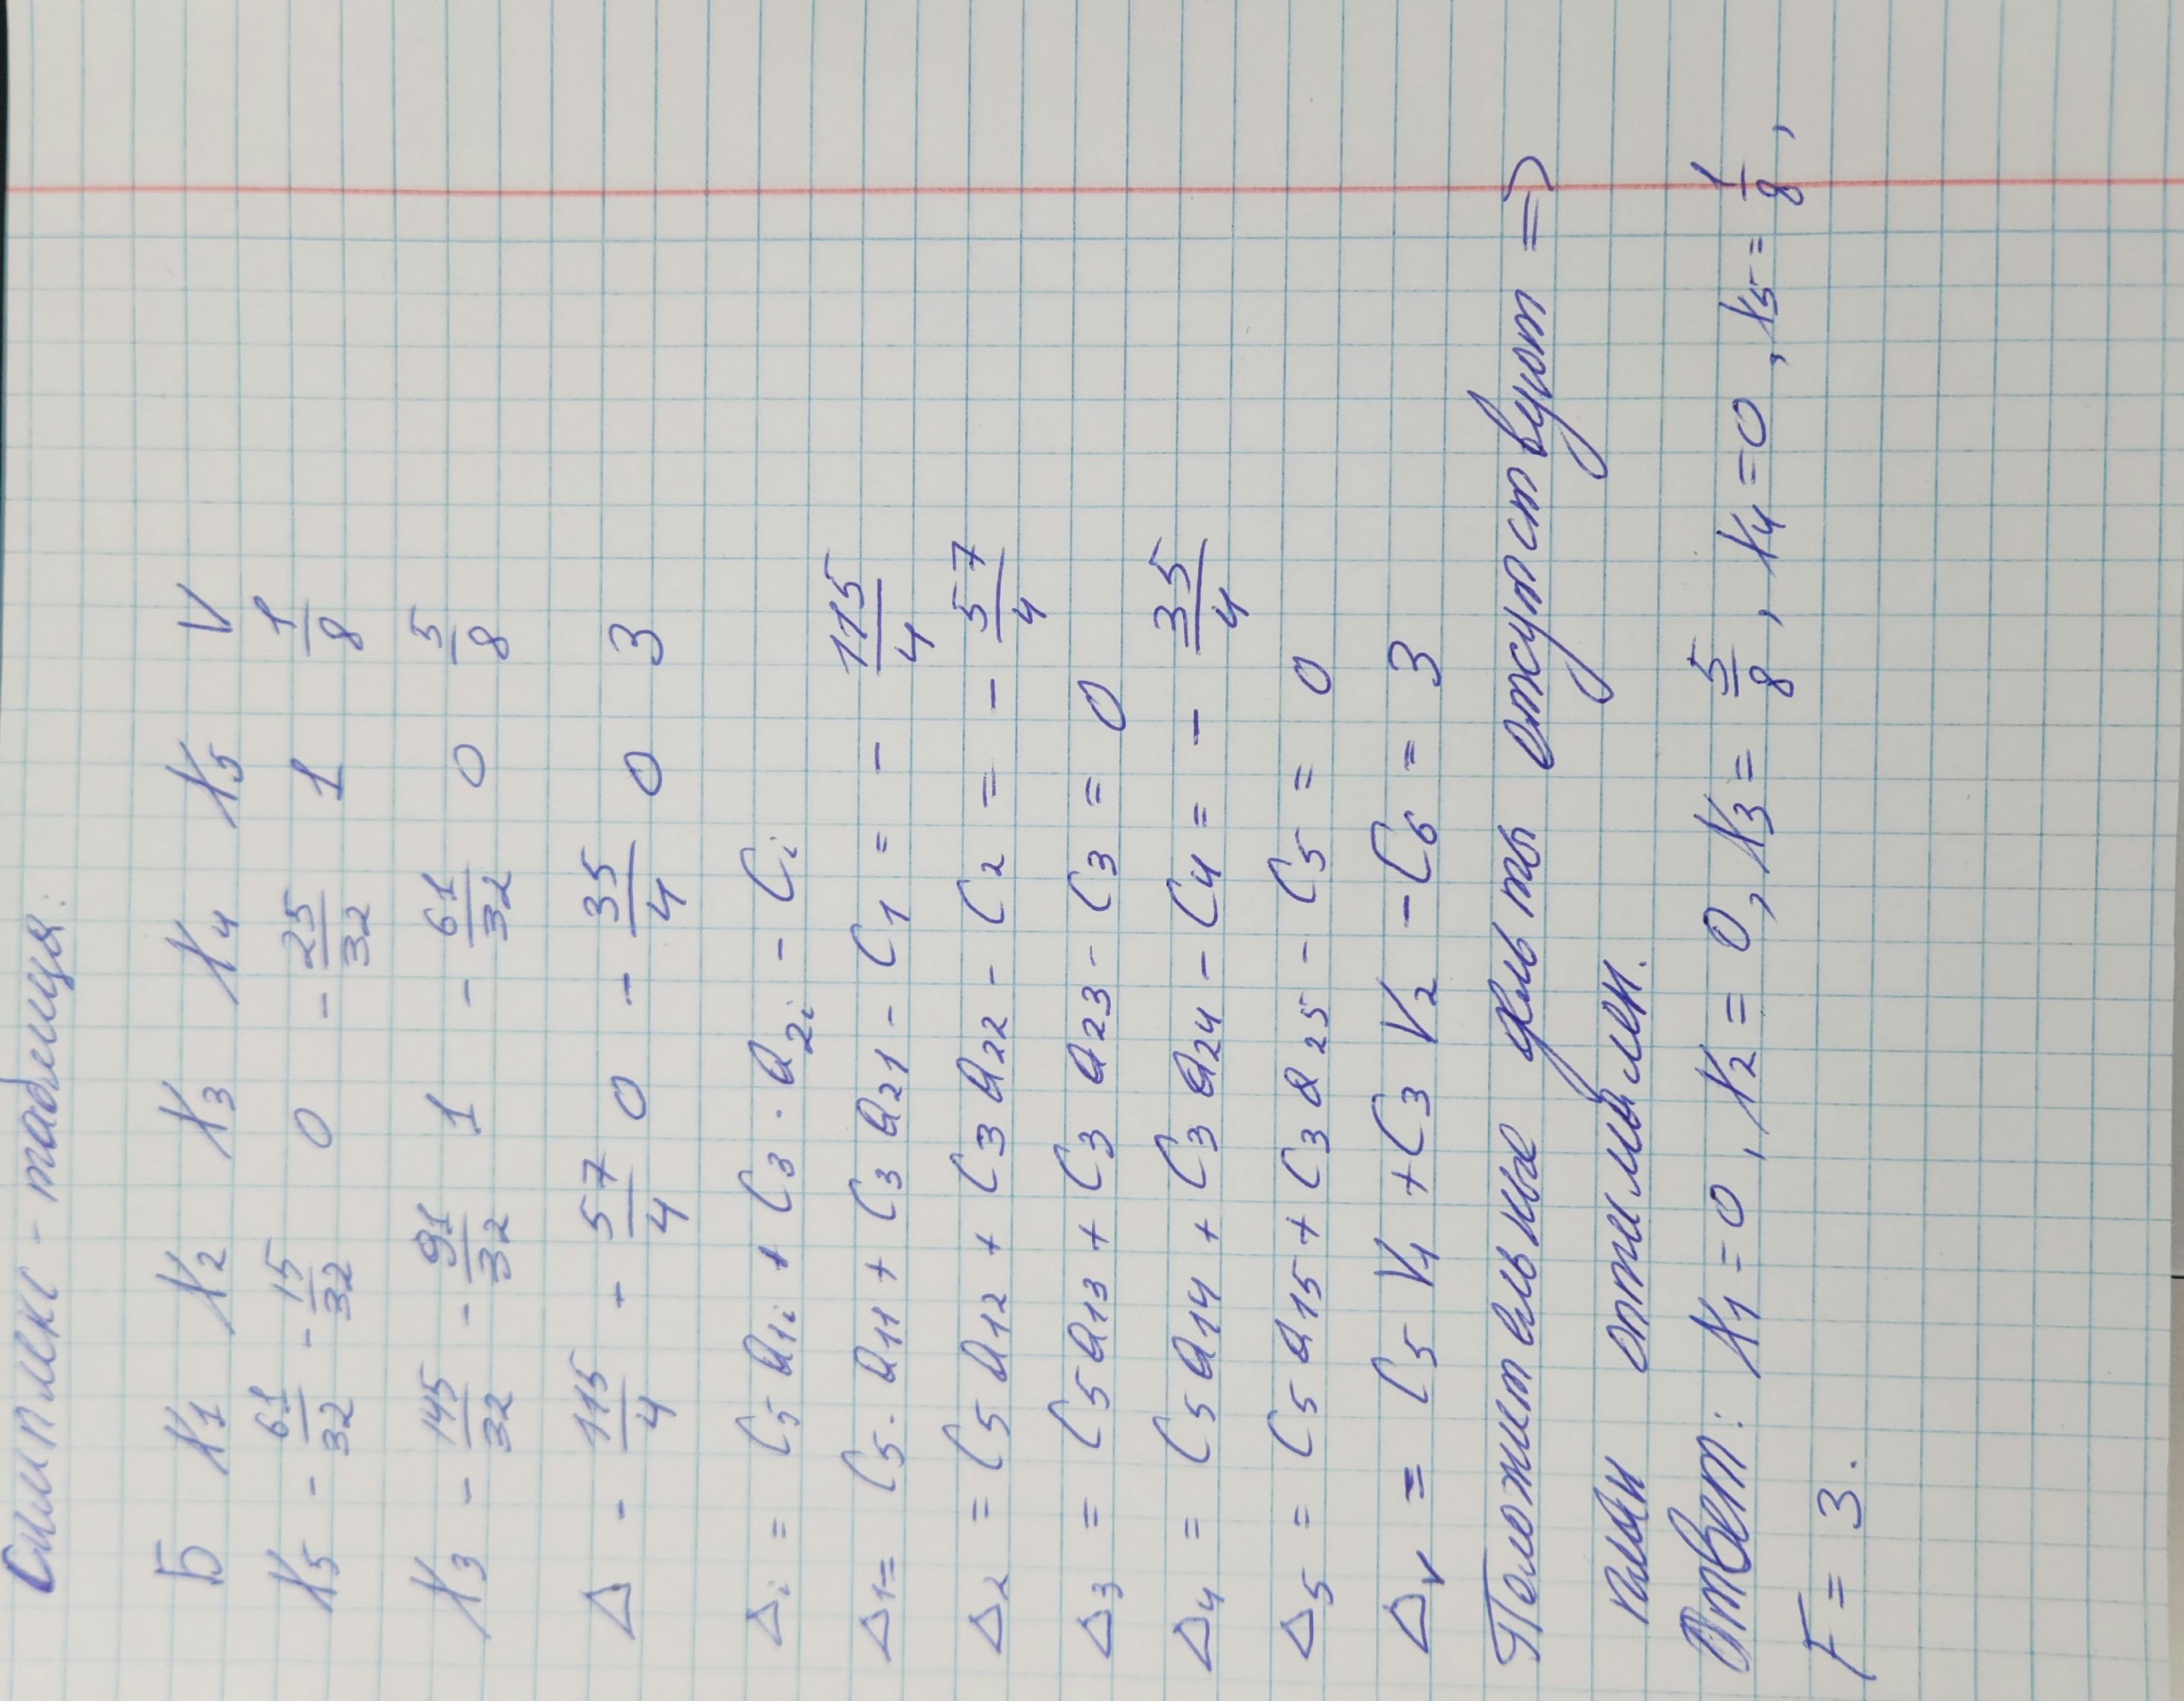 Симплекс - таблица:
Б X1 X2 X3 X4 X5 V
X5 - 61/32 - 15/32 0 - 25/32 1 1/8
X3 - 145/32 - 91/32 1 - 61/32 0 5/8
Δ - 115/4 - 57/4 0 - 35/4 0 3
Δi = C5 a1i + C3 · a2i - Ci
Δ1 = C5 · a11 + C3 a21 - C1 = - 115/4
Δ2 = C5 a12 + C3 a22 - C2 = - 57/4
Δ3 = C5 a13 + C3 a23 - C3 = 0
Δ4 = C5 a14 + C3 a24 - C4 = - 35/4
Δ5 = C5 a15 + C3 a25 - C5 = 0
Δv = C5 V1 + C3 V2 - C6 = 3
Положительные дельты отсутствуют =>
план оптимален.
Ответ: X1 = 0, X2 = 0, X3 = 5/8, X4 = 0, X5 = 1/8,
F = 3.